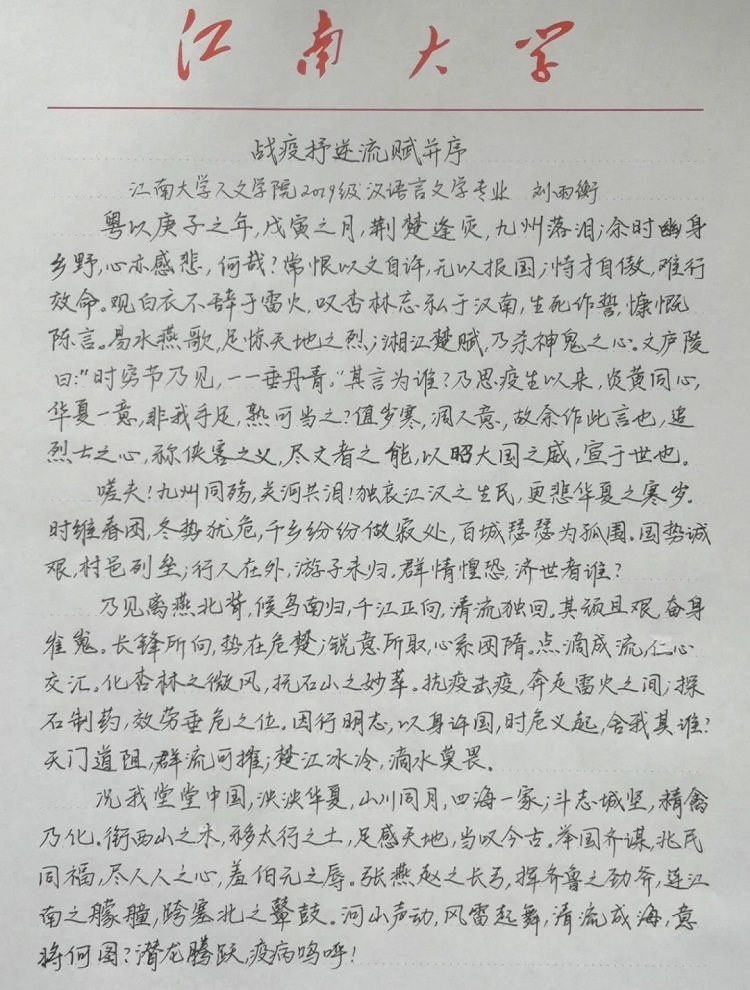 江南大学
战疫抒逆流赋并序
江南大学人文学院2019级汉语言文学专业 刘雨衡
粤以庚子之年，戊寅之月，荆楚逢灾，九州落泪；余时幽身
乡野，心亦感悲，何哉？常恨以文自许，无以报国；恃才自傲，难行
效命。观白衣不辞于雷火，叹杏林忘私于汉南，生死作誓，慷慨
陈言。易水燕歌，足惊天地之烈；湘江楚赋，乃杀神鬼之心。文庐陵
曰：“时穷节乃见，一一垂丹青。”其言为谁？乃思疫生以来，炎黄同心，
华夏一意，非我手足，熟可当之？值岁寒，凋人意，故余作此言也，追
烈士之心，称侠客之义，尽文者之能，以昭大国之威，宣于世也。
嗟夫！九州同殇，关河共泪！独哀江汉之生民，更悲华夏之寒岁。
时维春困，冬势犹危，千乡纷纷做寂处，百城瑟瑟为孤围。国势诚
艰，村邑列垒；行人在外，游子未归。群情惶恐，济世者谁？
乃见离燕北背，候鸟南归，千江正向，清流独回。其颀且艰，奋身
崔嵬。长锋所向，势在危楚；锐意所取，心系困隋。点滴成流，仁心
交汇。化杏林之微风，抚石山之妙萃。抗疫去疫，奔走雷火之间；探
石制药，效劳垂危之位。因行明志，以身许国，时危义起，舍我其谁？
天门道阻，群流可摧；楚江冰冷，滴水莫畏。
况我堂堂中国，泱泱华夏，山川同月，四海一家；斗志城坚，精禽
乃化。衔西山之木，移太行之土，足感天地，当叹今古。举国齐谋，兆民
同福，尽人人之心，羞伯元之辱。张燕赵之长弓，挥齐鲁之劲斧，连江
南之艨艟，跨塞北之鼙鼓。河山声动，风雷起舞，清流成海，意
将何图？潜龙腾跃，疫病呜呼！